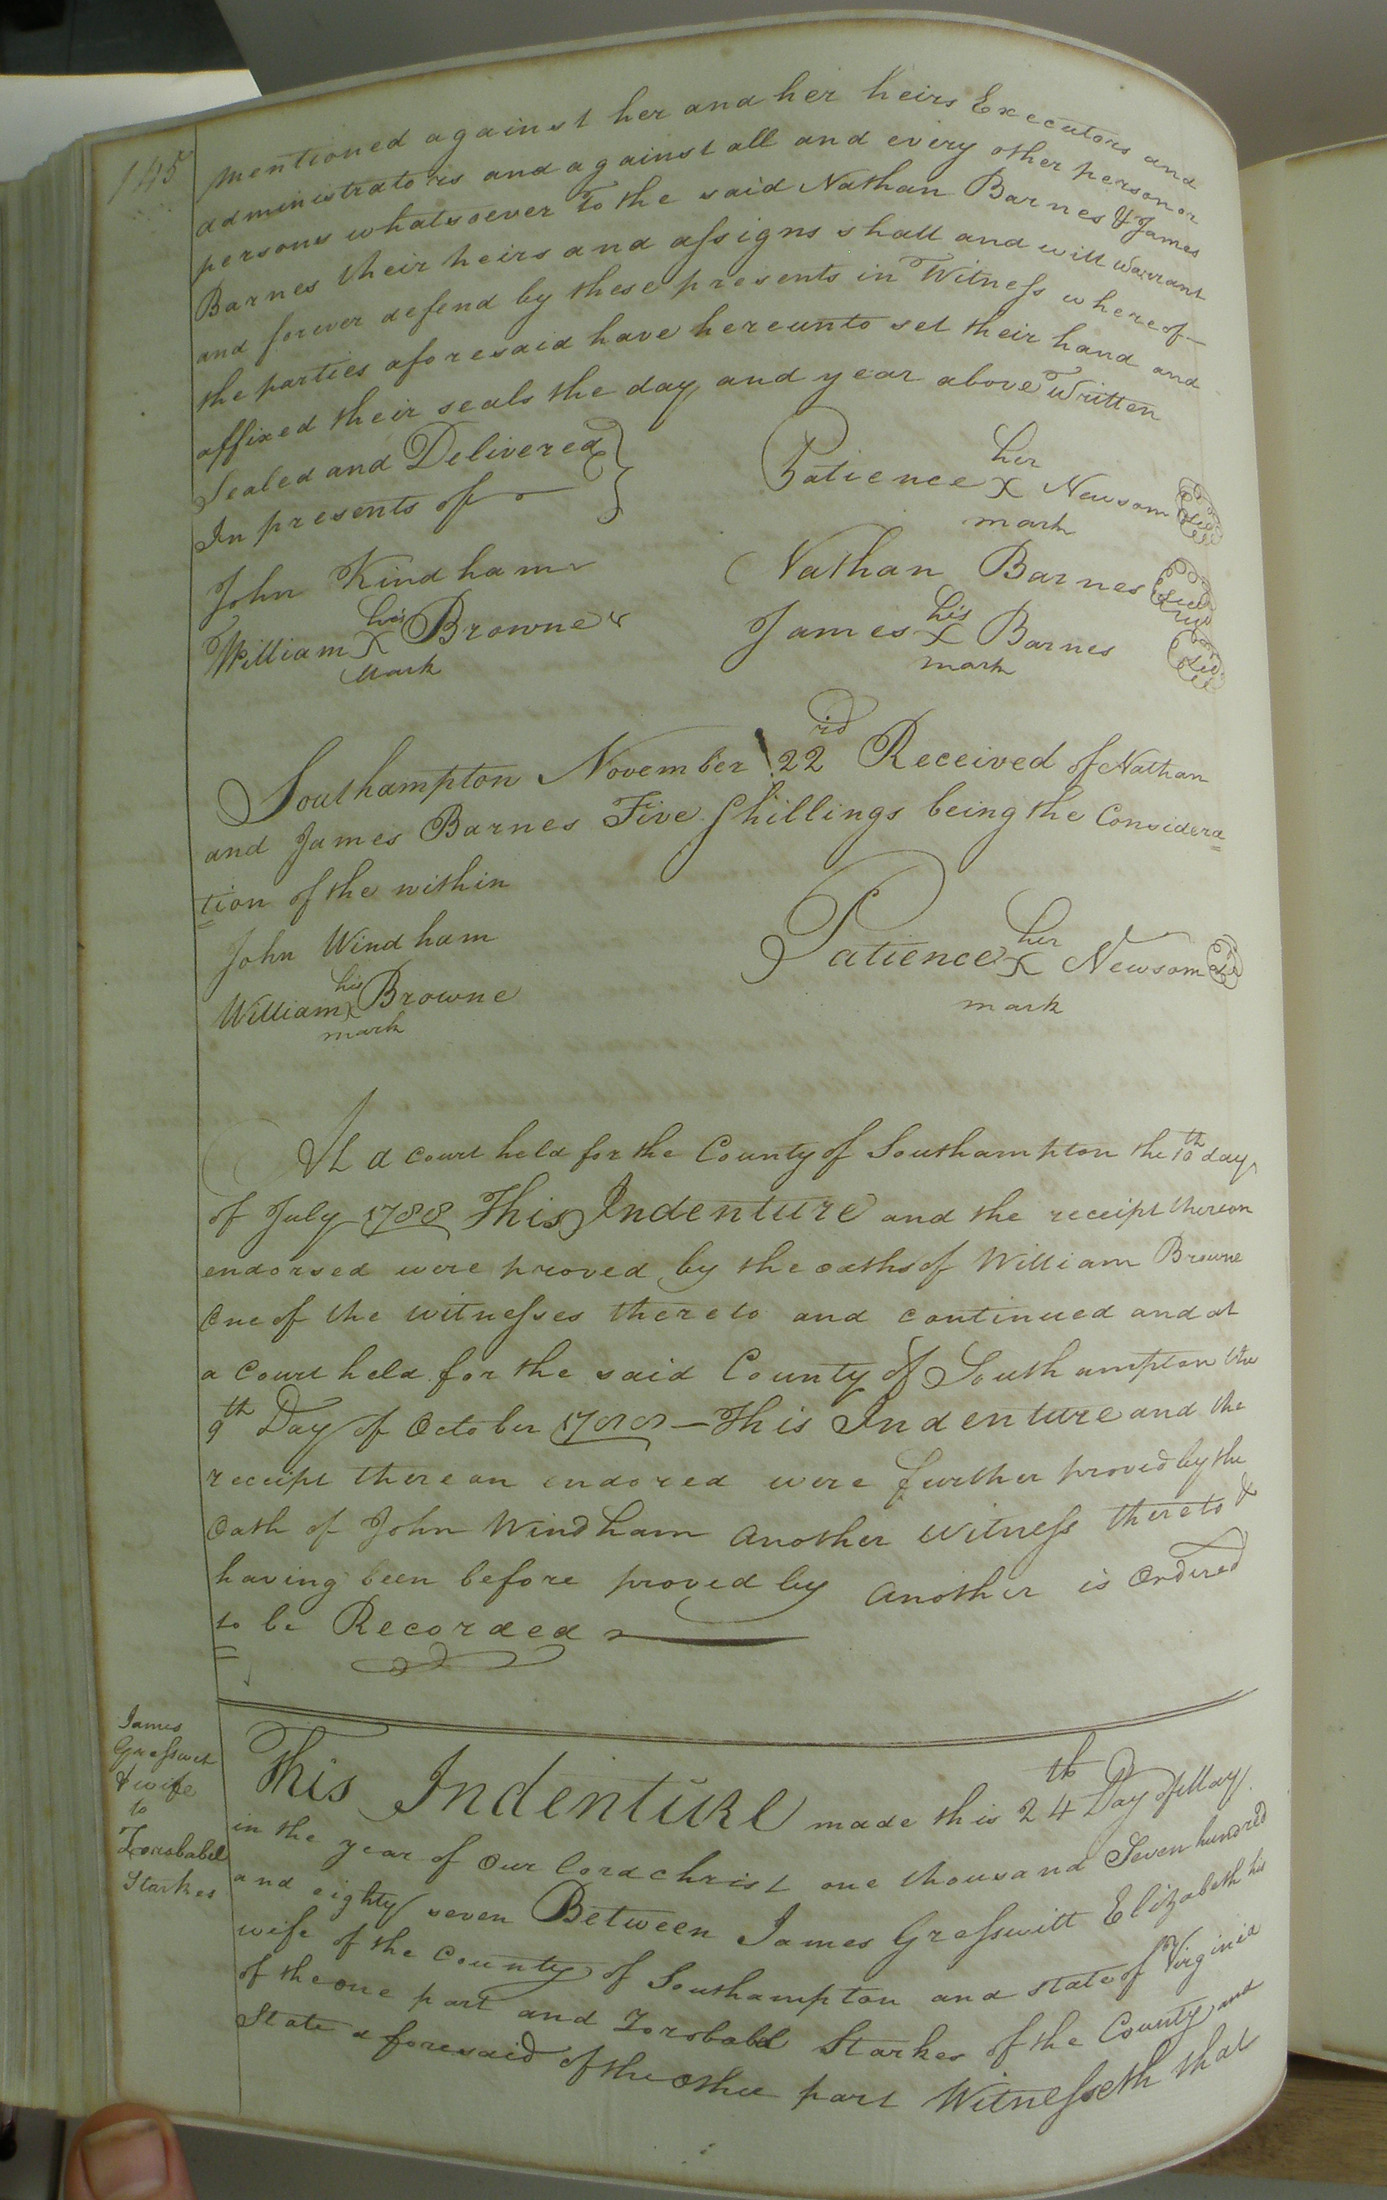 145
mentioned against her and her heirs Executors and
administrators and against all and every other person or
persons whatsoever To the said Nathan Barnes & James
Barnes their heirs and assigns shall and will warrant
and forever defend by these presents in Witness whereof—
the parties aforesaid have hereunto set their hand and
affixed their seals the day and year above Written
Sealed and Delivered
In presents of
her
Patience X Newsom
mark
John Kindham
Nathan Barnes
his
William X Browne
Mark
his
James X Barnes
mark
Southampton November 22rd Received of Nathan
and James Barnes Five Shillings being the Considera=
=tion of the within
John Windham
her
Patience X Newsom
mark
his
William X Browne
mark
At a Court held for the County of Southampton the 10th day
of July 1788 This Indenture and the receipt thereon
endorsed were proved by the oaths of William Browne
One of the witnesses thereto and continued and at
a Court held for the said County of Southampton the
9th Day of October 1788 — This Indenture and the
receipt there on endored were further proved by the
Oath of John Windham Another Witness thereto &
having been before proved by Another is Ordered
to be Recorded
James
Gresswit
& wife
to
Zorobabel
Starkes
This Indenture made this 24th Day of May
in the year of our Lord christ one thousand Seven hundred
and eighty seven Between James Gresswitt Elizabeth his
wife of the County of Southampton and state of Virginia
of the one part and Zorobabel Starkes of the County and
State aforesaid of the other part Witnesseth that